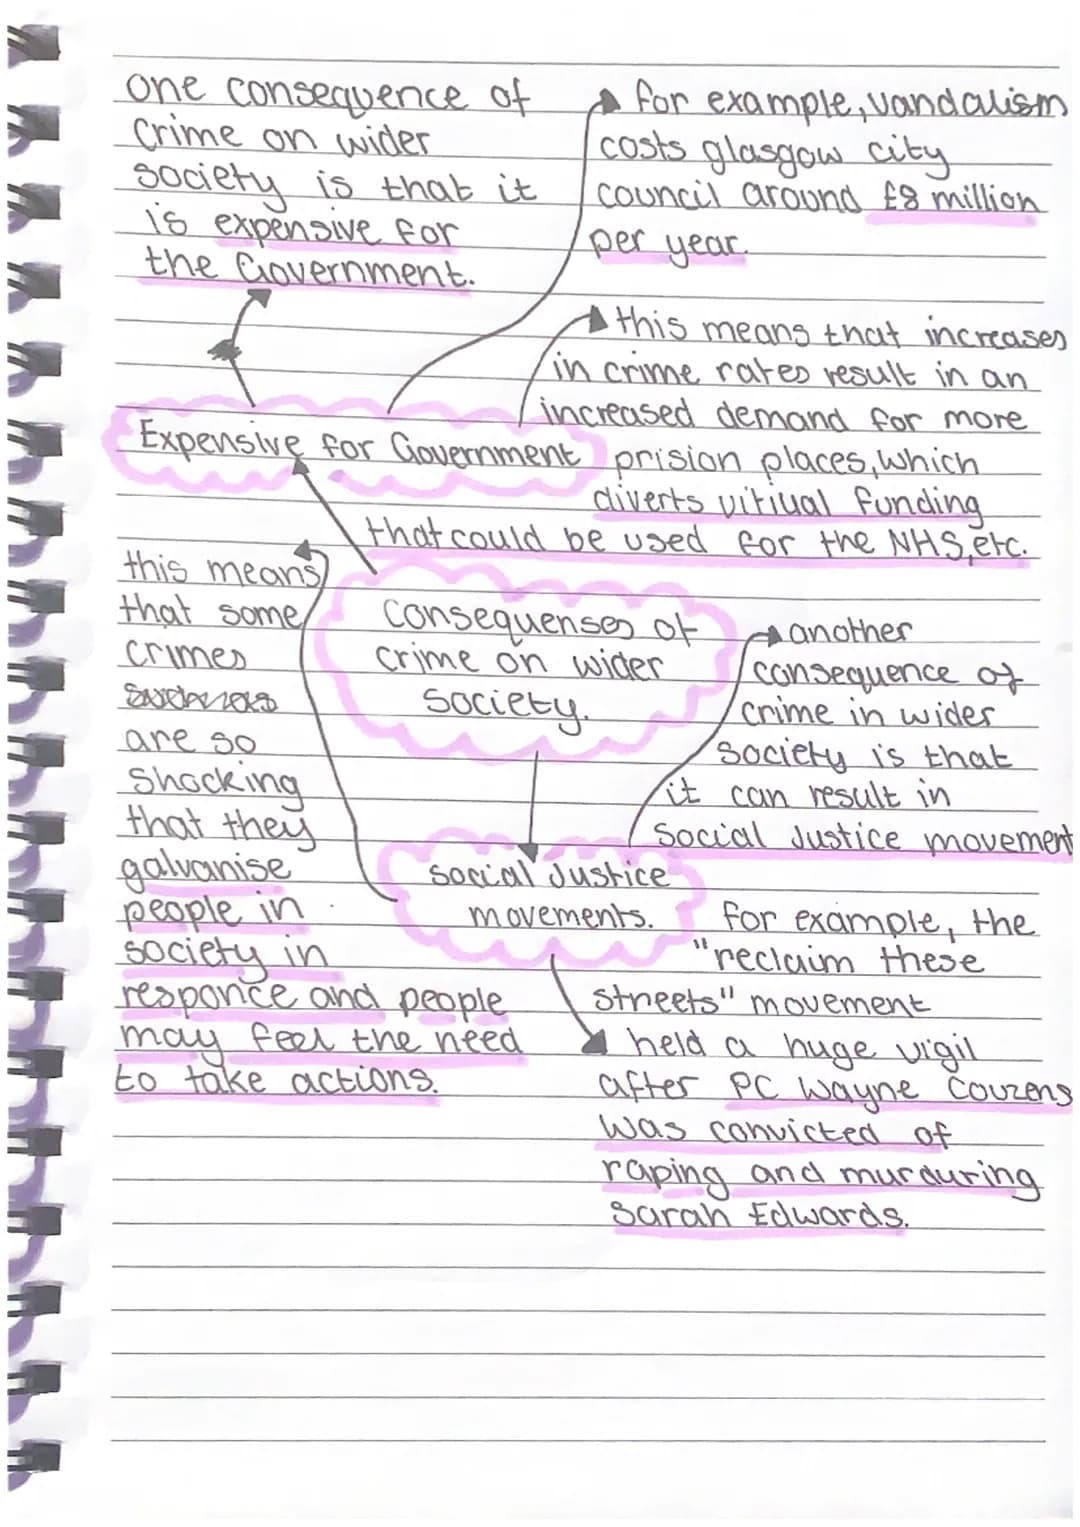 one consequence of
crime on wider
society is that it
is expensive for
the Government.
for example, vandalism
costs glasgow city
council around £8 million
per year.
this means that increases
in crime rates result in an
increased demand for more
prision places, which
diverts vitiual funding
that could be used for the NHS, etc.
Expensive for Government
Consequenses of
crime on wider
society.
another
consequence of
crime in wider
society is that
it can result in
social Justice movement
this means
that some
crimes
are so
shocking
that they
galvanise
people in
society in
responce and people
may feel the need
to take actions.
social Justice
movements.
for example, the
"reclaim these
streets" movement
held a huge vigil
after PC Wayne Couzens
was convicted of
raping and murduring
Sarah Edwards.